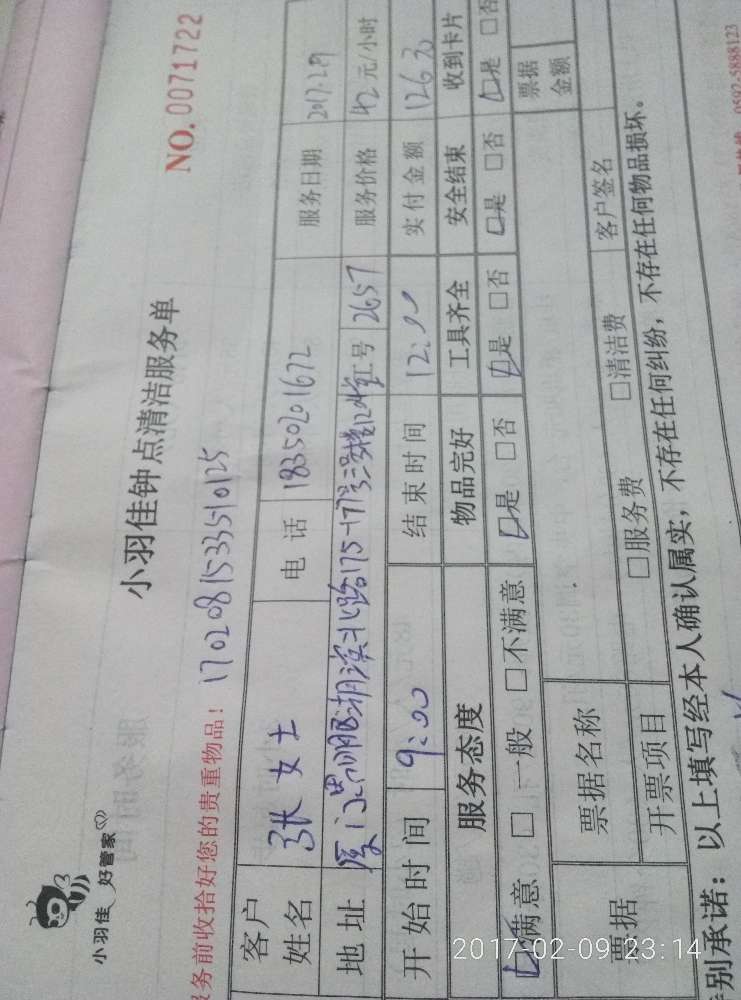 小羽佳 好管家
小羽佳钟点清洁服务单
NO.0071722
务前收拾好您的贵重物品! 170208153351 0125
客户姓名 张女士 电话 18350201672 服务日期 2017.2.9
地址 厦门思明区湖滨北路175-177号 工号 2657 服务价格 42元/小时
开始时间 9:00 结束时间 12:00 实付金额 126元
服务态度 物品完好 工具齐全 安全结束 收到卡片
满意 □一般 □不满意 □是 □否 □是 □否 □是 □否 □是 □否
票据 票据名称 票据金额
开票项目 □服务费 □清洁费 客户签名
别承诺: 以上填写经本人确认属实, 不存在任何纠纷, 不存在任何物品损坏。
0592-5888123
2017-02-09 23:14